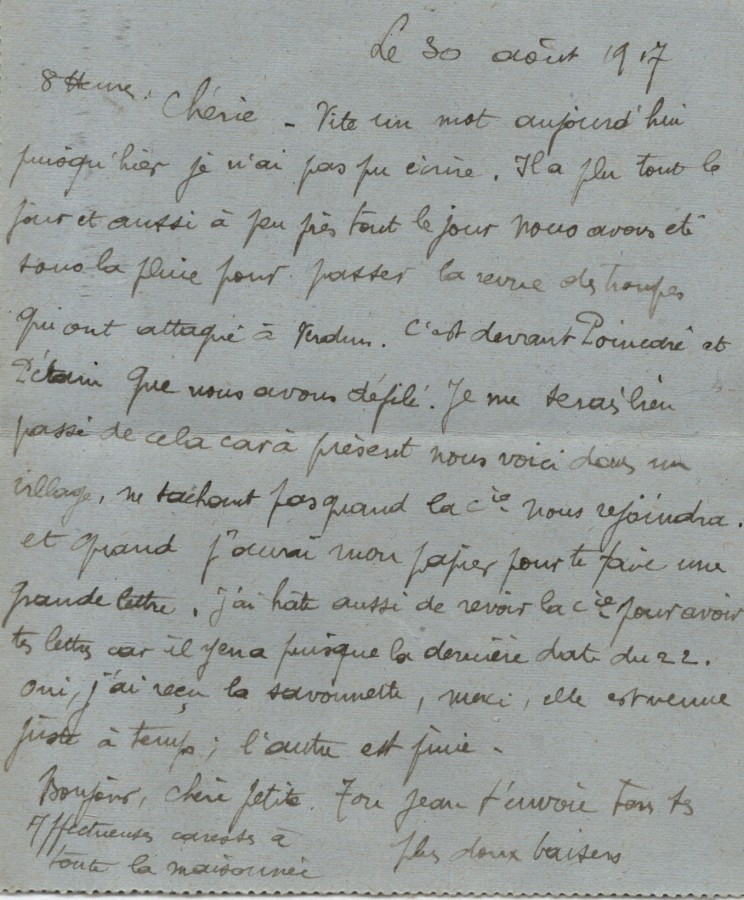 Le 30 août 1917
8 Heures. Chérie - Vite un mot aujourd'hui
puisqu'hier je n'ai pas pu écrire. Il a plu tout le
jour et aussi à peu près tout le jour nous avons été
sous la pluie pour passer la revue des troupes
qui ont attaqué à Verdun. C'est devant Poincaré et
Pétain que nous avons défilé. Je me serais bien
passé de cela car à présent nous voici dans un
village, ne sachant pas quand la Cie nous rejoindra.
et quand j'aurai mon papier pour te faire une
grande lettre. J'ai hâte aussi de revoir la Cie pour avoir
tes lettres car il y en a puisque la dernière date du 22.
Oui, j'ai reçu la savonnette, merci, elle est venue
juste à temps; l'autre est finie -
Bonjour, chère petite. Ton Jean t'envoie tous ses
plus doux baisers
Affectueuses caresses à
toute la maisonnée